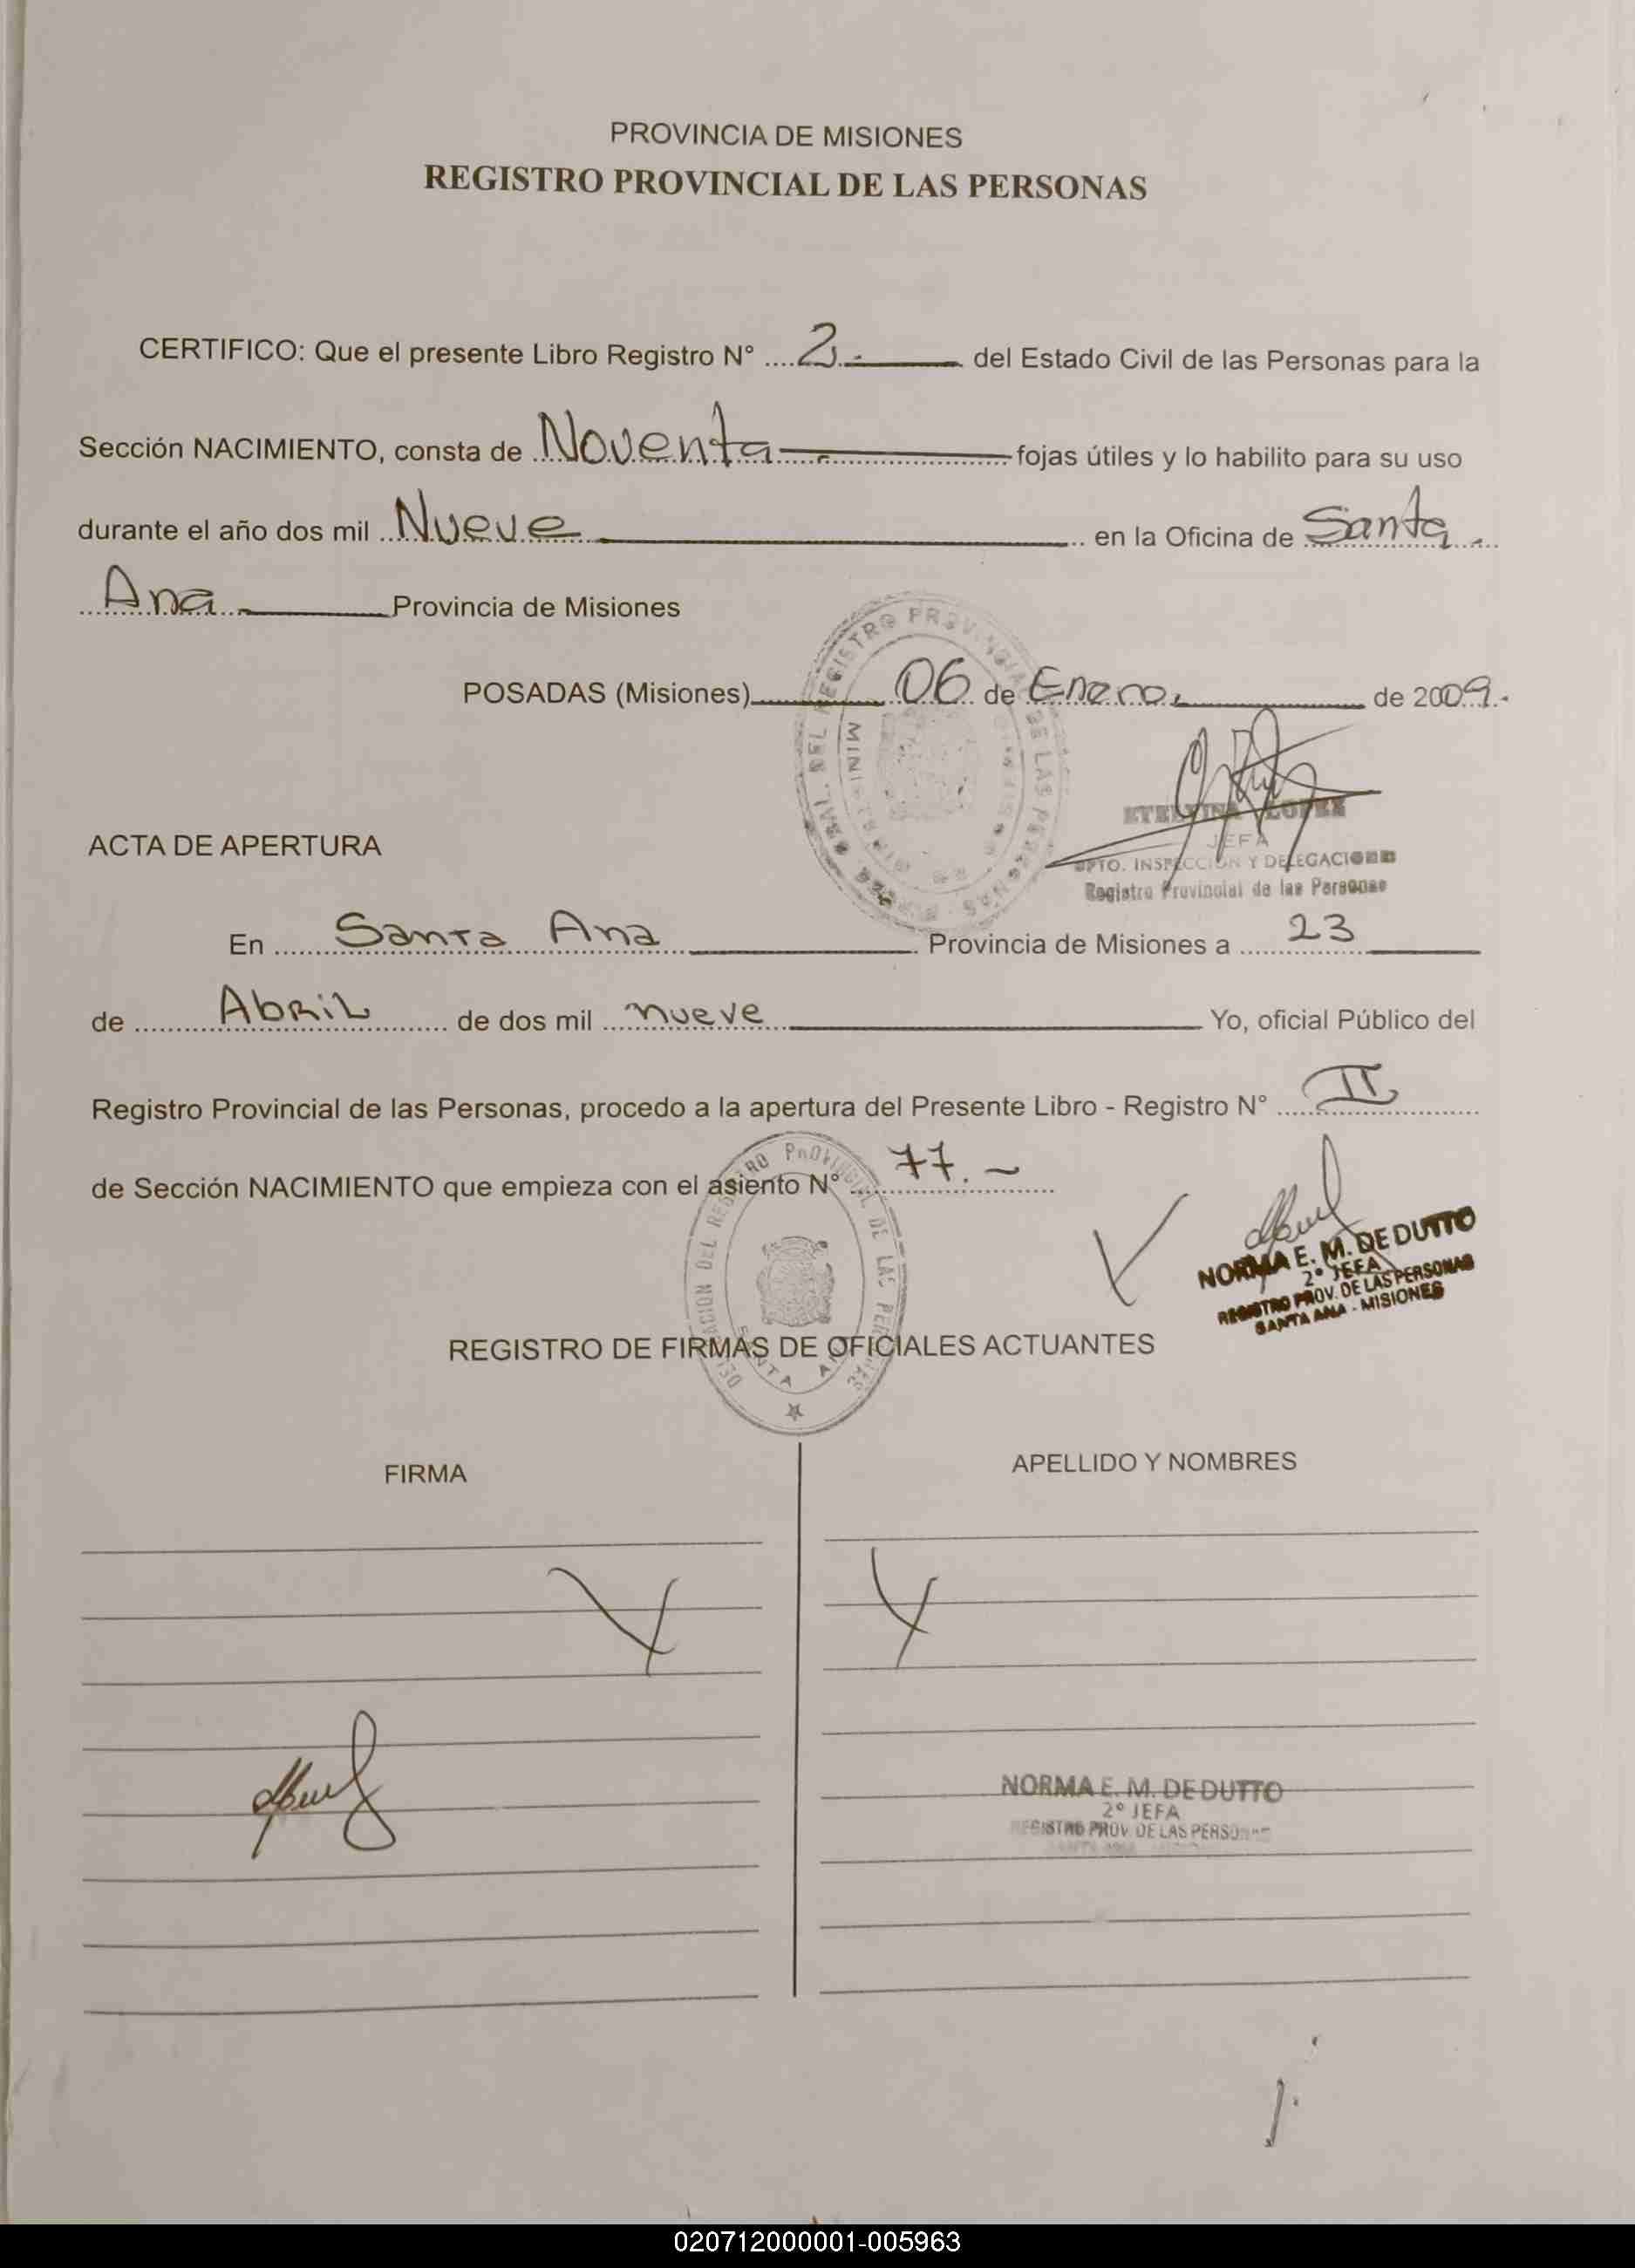 PROVINCIA DE MISIONES
REGISTRO PROVINCIAL DE LAS PERSONAS
CERTIFICO: Que el presente Libro Registro N° 2.- del Estado Civil de las Personas para la
Sección NACIMIENTO, consta de Noventa.- fojas útiles y lo habilito para su uso
durante el año dos mil Nueve.- en la Oficina de Santa
Ana.- Provincia de Misiones
POSADAS (Misiones) 06 de Enero, de 2009.-
ETELVINA LOPEZ
JEFA
DPTO. INSPECCION Y DELEGACIONES
Registro Provincial de las Personas
ACTA DE APERTURA
En Santa Ana Provincia de Misiones a 23
de Abril de dos mil nueve Yo, oficial Público del
Registro Provincial de las Personas, procedo a la apertura del Presente Libro - Registro N° II
de Sección NACIMIENTO que empieza con el asiento N° 77.-
DELEGACION DEL REGISTRO PROVINCIAL DE LAS PERSONAS
SANTA ANA
NORMA E. M. DE DUTTO
2° JEFA
REGISTRO PROV. DE LAS PERSONAS
SANTA ANA - MISIONES
REGISTRO DE FIRMAS DE OFICIALES ACTUANTES
FIRMA APELLIDO Y NOMBRES
NORMA E. M. DE DUTTO
2° JEFA
REGISTRO PROV. DE LAS PERSONAS
020712000001-005963